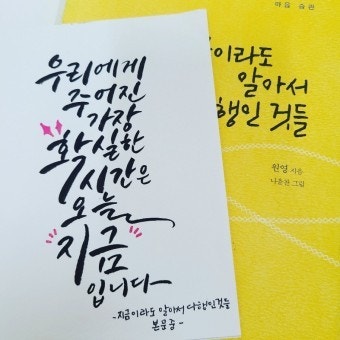 우리에게
주어진
가장
확실한
시간은
오늘
지금
입니다
-지금이라도 알아서 다행인것들
본문중-
마음 습관
이라도
알아서
행인 것들
원영 지음
나윤찬 그림